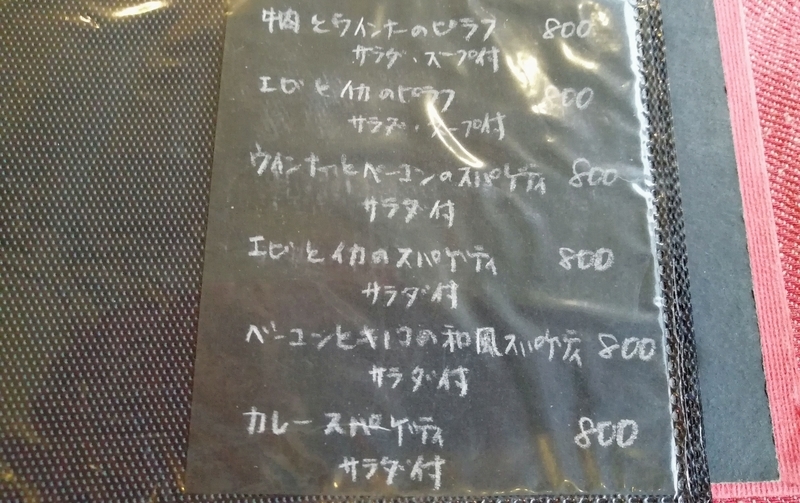 牛肉とウインナーのピラフ 800
サラダ・スープ付
エビとイカのピラフ 800
サラダ・スープ付
ウインナーとベーコンのスパゲティ 800
サラダ付
エビとイカのスパゲティ 800
サラダ付
ベーコンとキノコの和風スパゲティ 800
サラダ付
カレースパゲッティ 800
サラダ付